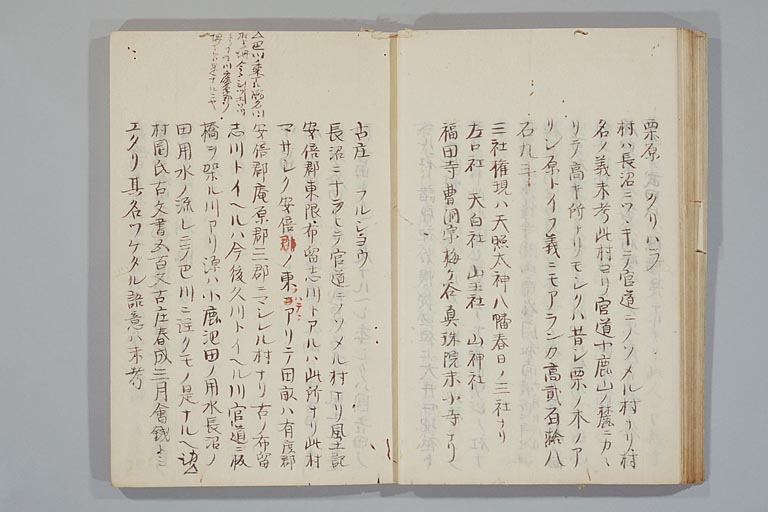 栗原 クリハラ
村ハ長沼ニツヽキテ官道ニノソメル村ナリ村
名ノ義未考此村ヨリ官道小鹿山ノ麓ニカヽ
リテ高キ所ナリモシクハ昔シ栗ノ木ノア
リシ原トイフ義ニモアランカ高貳百拾八
石九斗
三社権現ハ天照太神八幡春日ノ三社ナリ
左口社 天白社 山王社 山神社
福田寺曹洞宗梅ケ谷真珠院末小寺ナリ
古庄 フルシヨウ
長沼ニ十ヲヒテ官道ニノソメル村ナリ風土記
安倍郡東限布留志川トアルハ此所ナリ此村
マサシク安倍郡ノ東ハテニアリテ田畝ハ有度郡
安倍郡庵原郡三郡ニマシレル村ナリ右ノ布留
志川トイヘルハ今後久川トイヘル川官道ニ板
橋ヲ架ル川アリ源ハ小鹿池田ノ用水長沼ノ
田用水ノ流レニテ巴川ニ注クモノ是ナルヘシ
村岡氏古文書五百文古庄春成三月會錢
エクリ其名ツケタル語意ハ未考